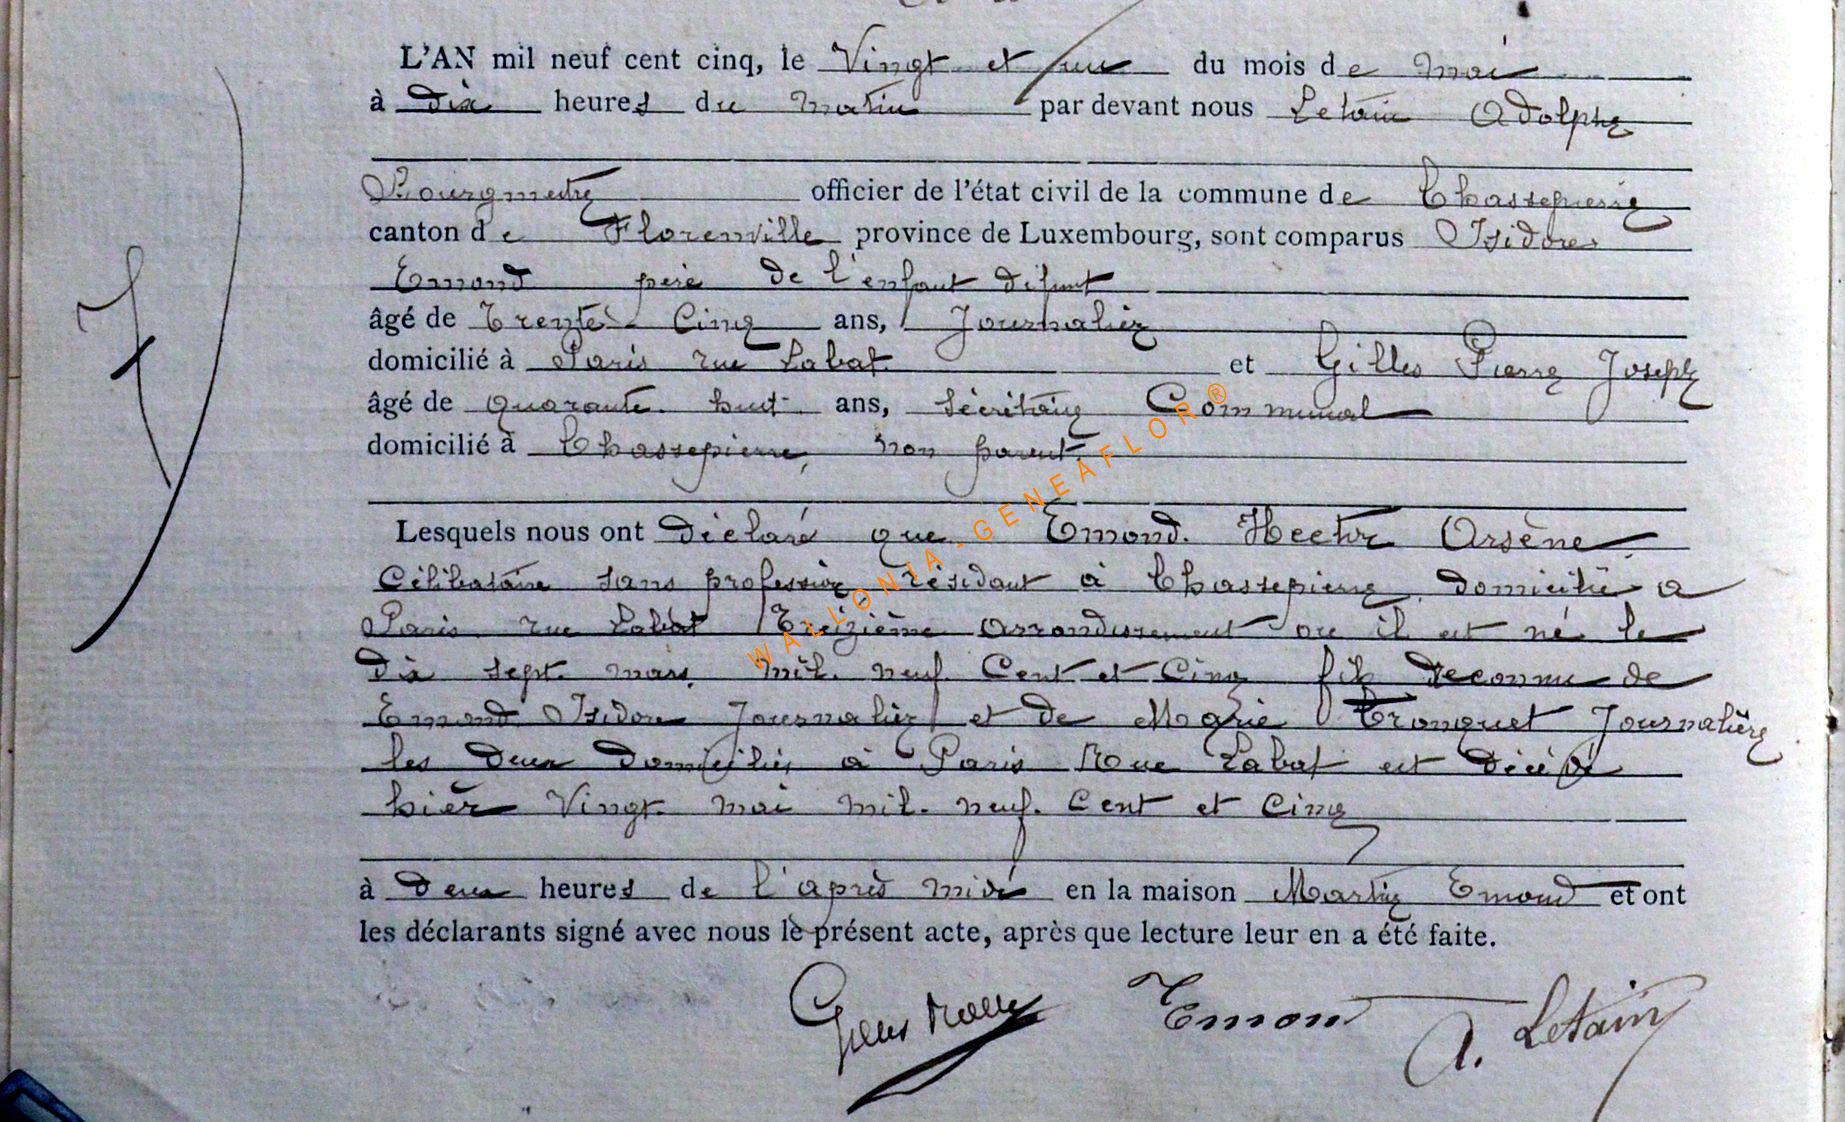 L'AN mil neuf cent cinq, le Vingt et un du mois de mai
à dix heures du matin par devant nous Letain Adolphe
Bourgmestre officier de l'état civil de la commune de Chassepierre
canton de Florenville province de Luxembourg, sont comparus Isidore
Emond père de l'enfant défunt
âgé de Trente-Cinq ans, Journalier
domicilié à Paris rue Labat et Gilles Pierre Joseph
âgé de quarante huit ans, Sécrétaire Communal
domicilié à Chassepierre, non parent.
Lesquels nous ont déclaré que Emond Hector Arsène
Célibataire sans profession, résidant à Chassepierre domicilié a
Paris rue Labat Treizième arrondissement ou il est né le
dix sept mars mil neuf Cent et Cinq fils reconnu de
Emond Isidore Journalier et de Marie Tronquet Journalière
les deux domiciliés à Paris Rue Labat est décédé
hier Vingt mai mil neuf Cent et Cinq
à deux heures de l'après midi en la maison Martin Emond et ont
les déclarants signé avec nous le présent acte, après que lecture leur en a été faite.
Gilles Emond A. Letain
WALLONIA-GENEAFLOR®